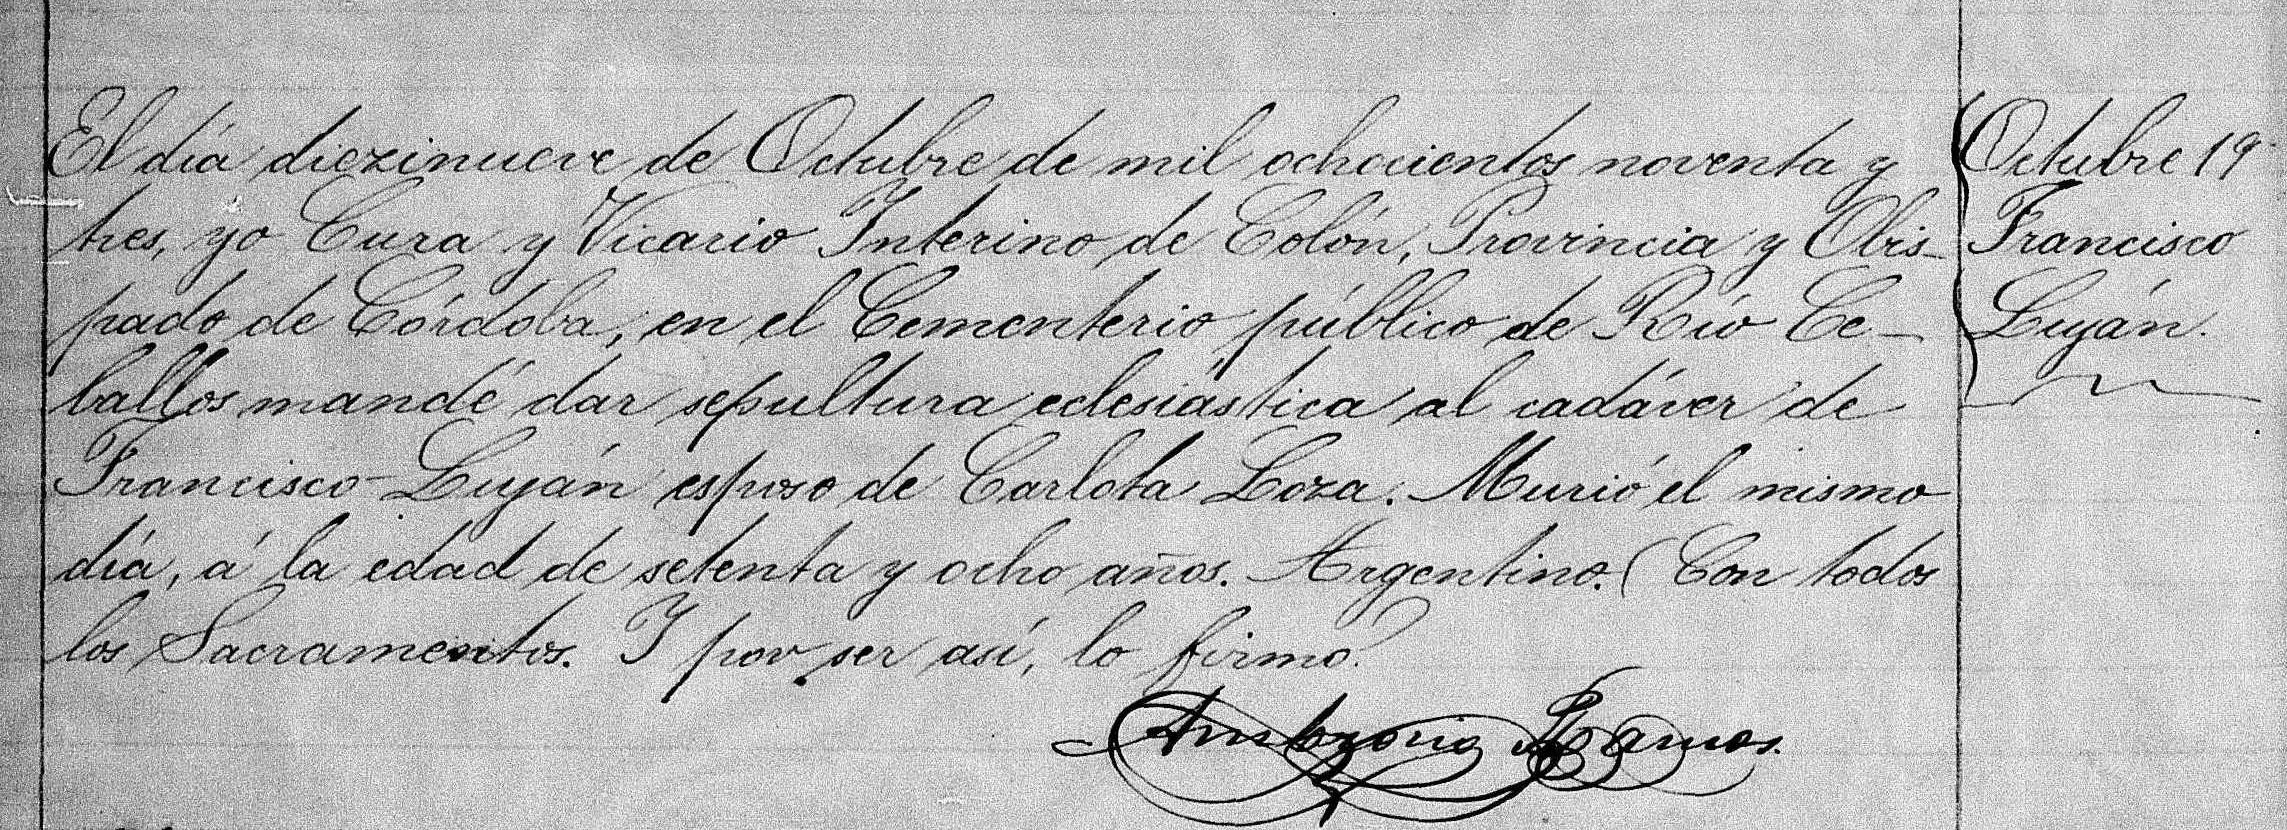 El día diezinueve de Octubre de mil ochocientos noventa y
tres, yo Cura y Vicario Interino de Colón, Provincia y Obis-
pado de Córdoba, en el Cementerio público de Río Ce-
ballos mandé dar sepultura eclesiástica al cadáver de
Francisco Luján esposo de Carlota Loza. Murió el mismo
día, á la edad de setenta y ocho años. Argentino. (Con todos
los Sacramentos. Y por ser así, lo firmo.
Ramos.
Octubre 19
Francisco
Luján.